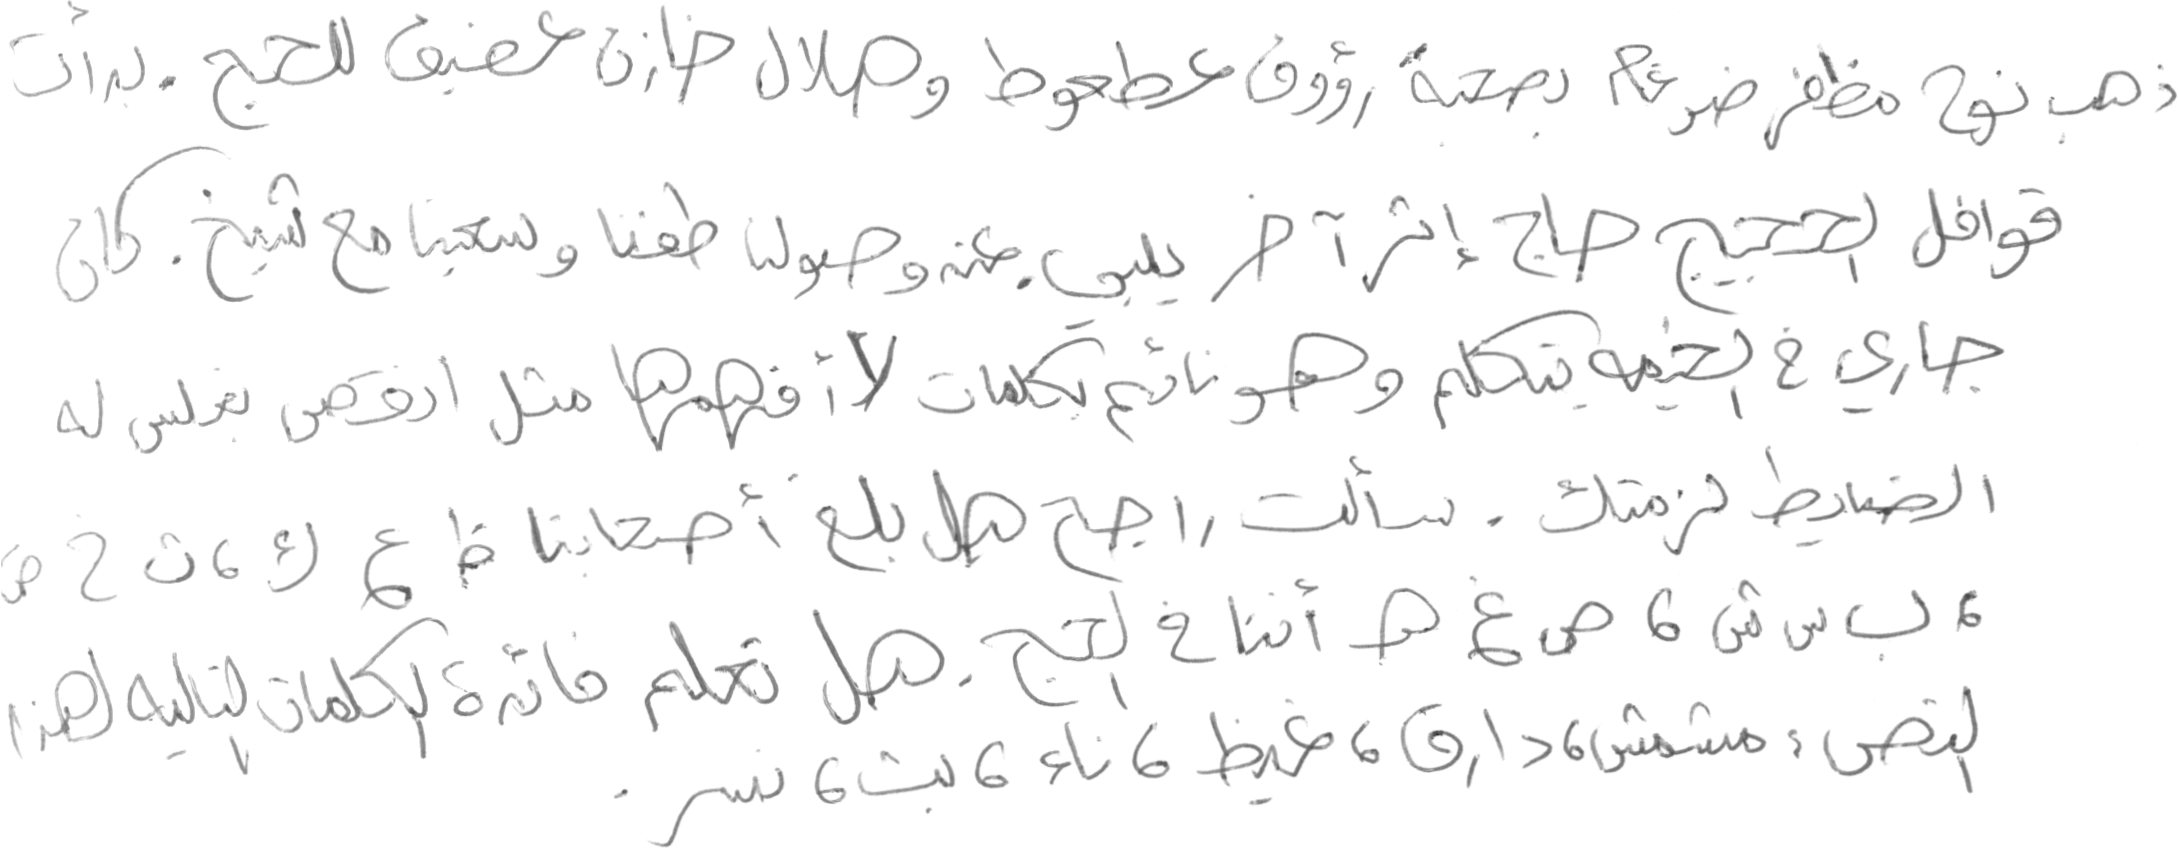 ذهب نوح مظفر ضرغام بصحبة رؤوف عطعوط وهلال خازن عضيق للحج . بدأت
قوافل الحجيج حاج إثر آخر يلبي . عند وصولنا طفنا وسعينا مع شيخ . كان
جاري في الخيمه يتكلم وهو نائم بكلمات لا أفهمها مثل ارقص بغلس له
الضابط لزمتك . سألت راجح هل بلغ أصحابنا ظ ع ك ، ث خ ض
، ب س ش ، ص غ ط أننا في الحج . هل تعلم فائدة الكلمات التاليه لهذا
النص : مشمش ، دارق ، غيظ ، ناء ، بث ، نسر .